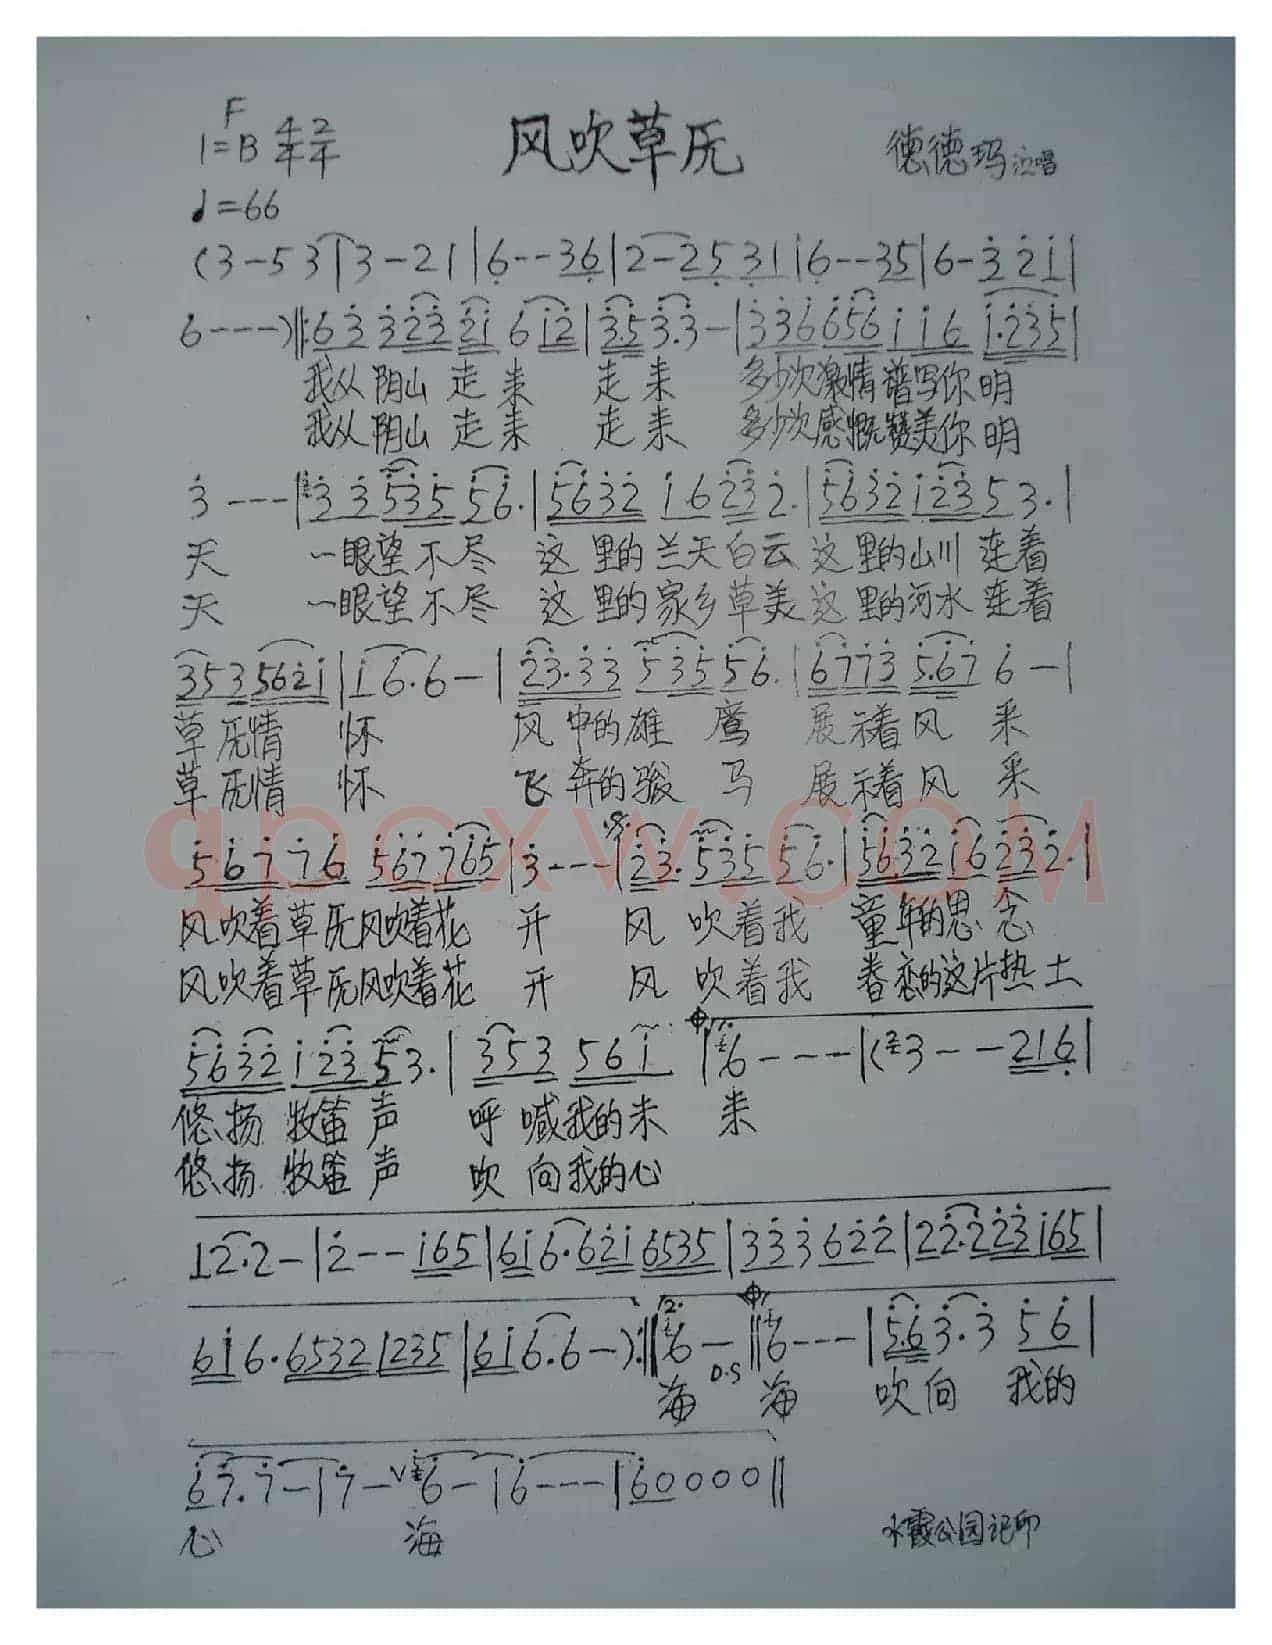 F
1=B 4/4 2/4
风吹草原
德德玛 演唱
♩=66
(3-5 3|3-2 1|6--3 6|2-2 5 3 1|6--3 5|6-3 2 1|
6---)‖:6 3 3 2 3 2 1 6 1 2|3 5 3.3-|3 3 6 6 5 6 1 1 6 1.2 3 5|
我从阴山走来 走来 多少次激情谱写你明
我从阴山走来 走来 多少次感慨赞美你明
3---|3 3 5 3 5 5 6.|5 6 3 2 1 6 2 3 2.|5 6 3 2 1 2 3 5 3.|
天 一眼望不尽 这里的兰天白云 这里的山川连着
天 一眼望不尽 这里的家乡草美 这里的河水连着
3 5 3 5 6 2 1|1 6.6-|2 3.3 3 5 3 5 5 6.|6 7 7 3 5.6 7 6-|
草原情怀 风中的雄鹰 展示着风采
草原情怀 飞奔的骏马 展示着风采
qpcxw.com
5.6 7 7 6 5 6 7 7 6 5|3---|2 3.5 3 5 5 6.|5 6 3 2 1 6 2 3 2.|
风吹着草原风吹着花开 风吹着我 童年的思念
风吹着草原风吹着花开 风吹着我 眷恋的这片热土
5 6 3 2 1 2 3 5 3.|3 5 3 5 6 1|6---|(3--2 1 6|
悠扬牧笛声 呼喊我的未来
悠扬牧笛声 吹向我的心
1 2.2-|2--1 6 5|6 1 6.6 2 1 6 5 3 5|3 3 3 6 2 2|2 2.2 2 3 1 6 5|
6 1 6.6 5 3 2 1 2 3 5|6 1 6.6-):‖2.6-‖6---|5.6 3.3 5 6|
D.S
海 海 吹向我的
6 7.7-|7-∨6-|6---|6 0 0 0 0‖
心 海
水霞公园记印